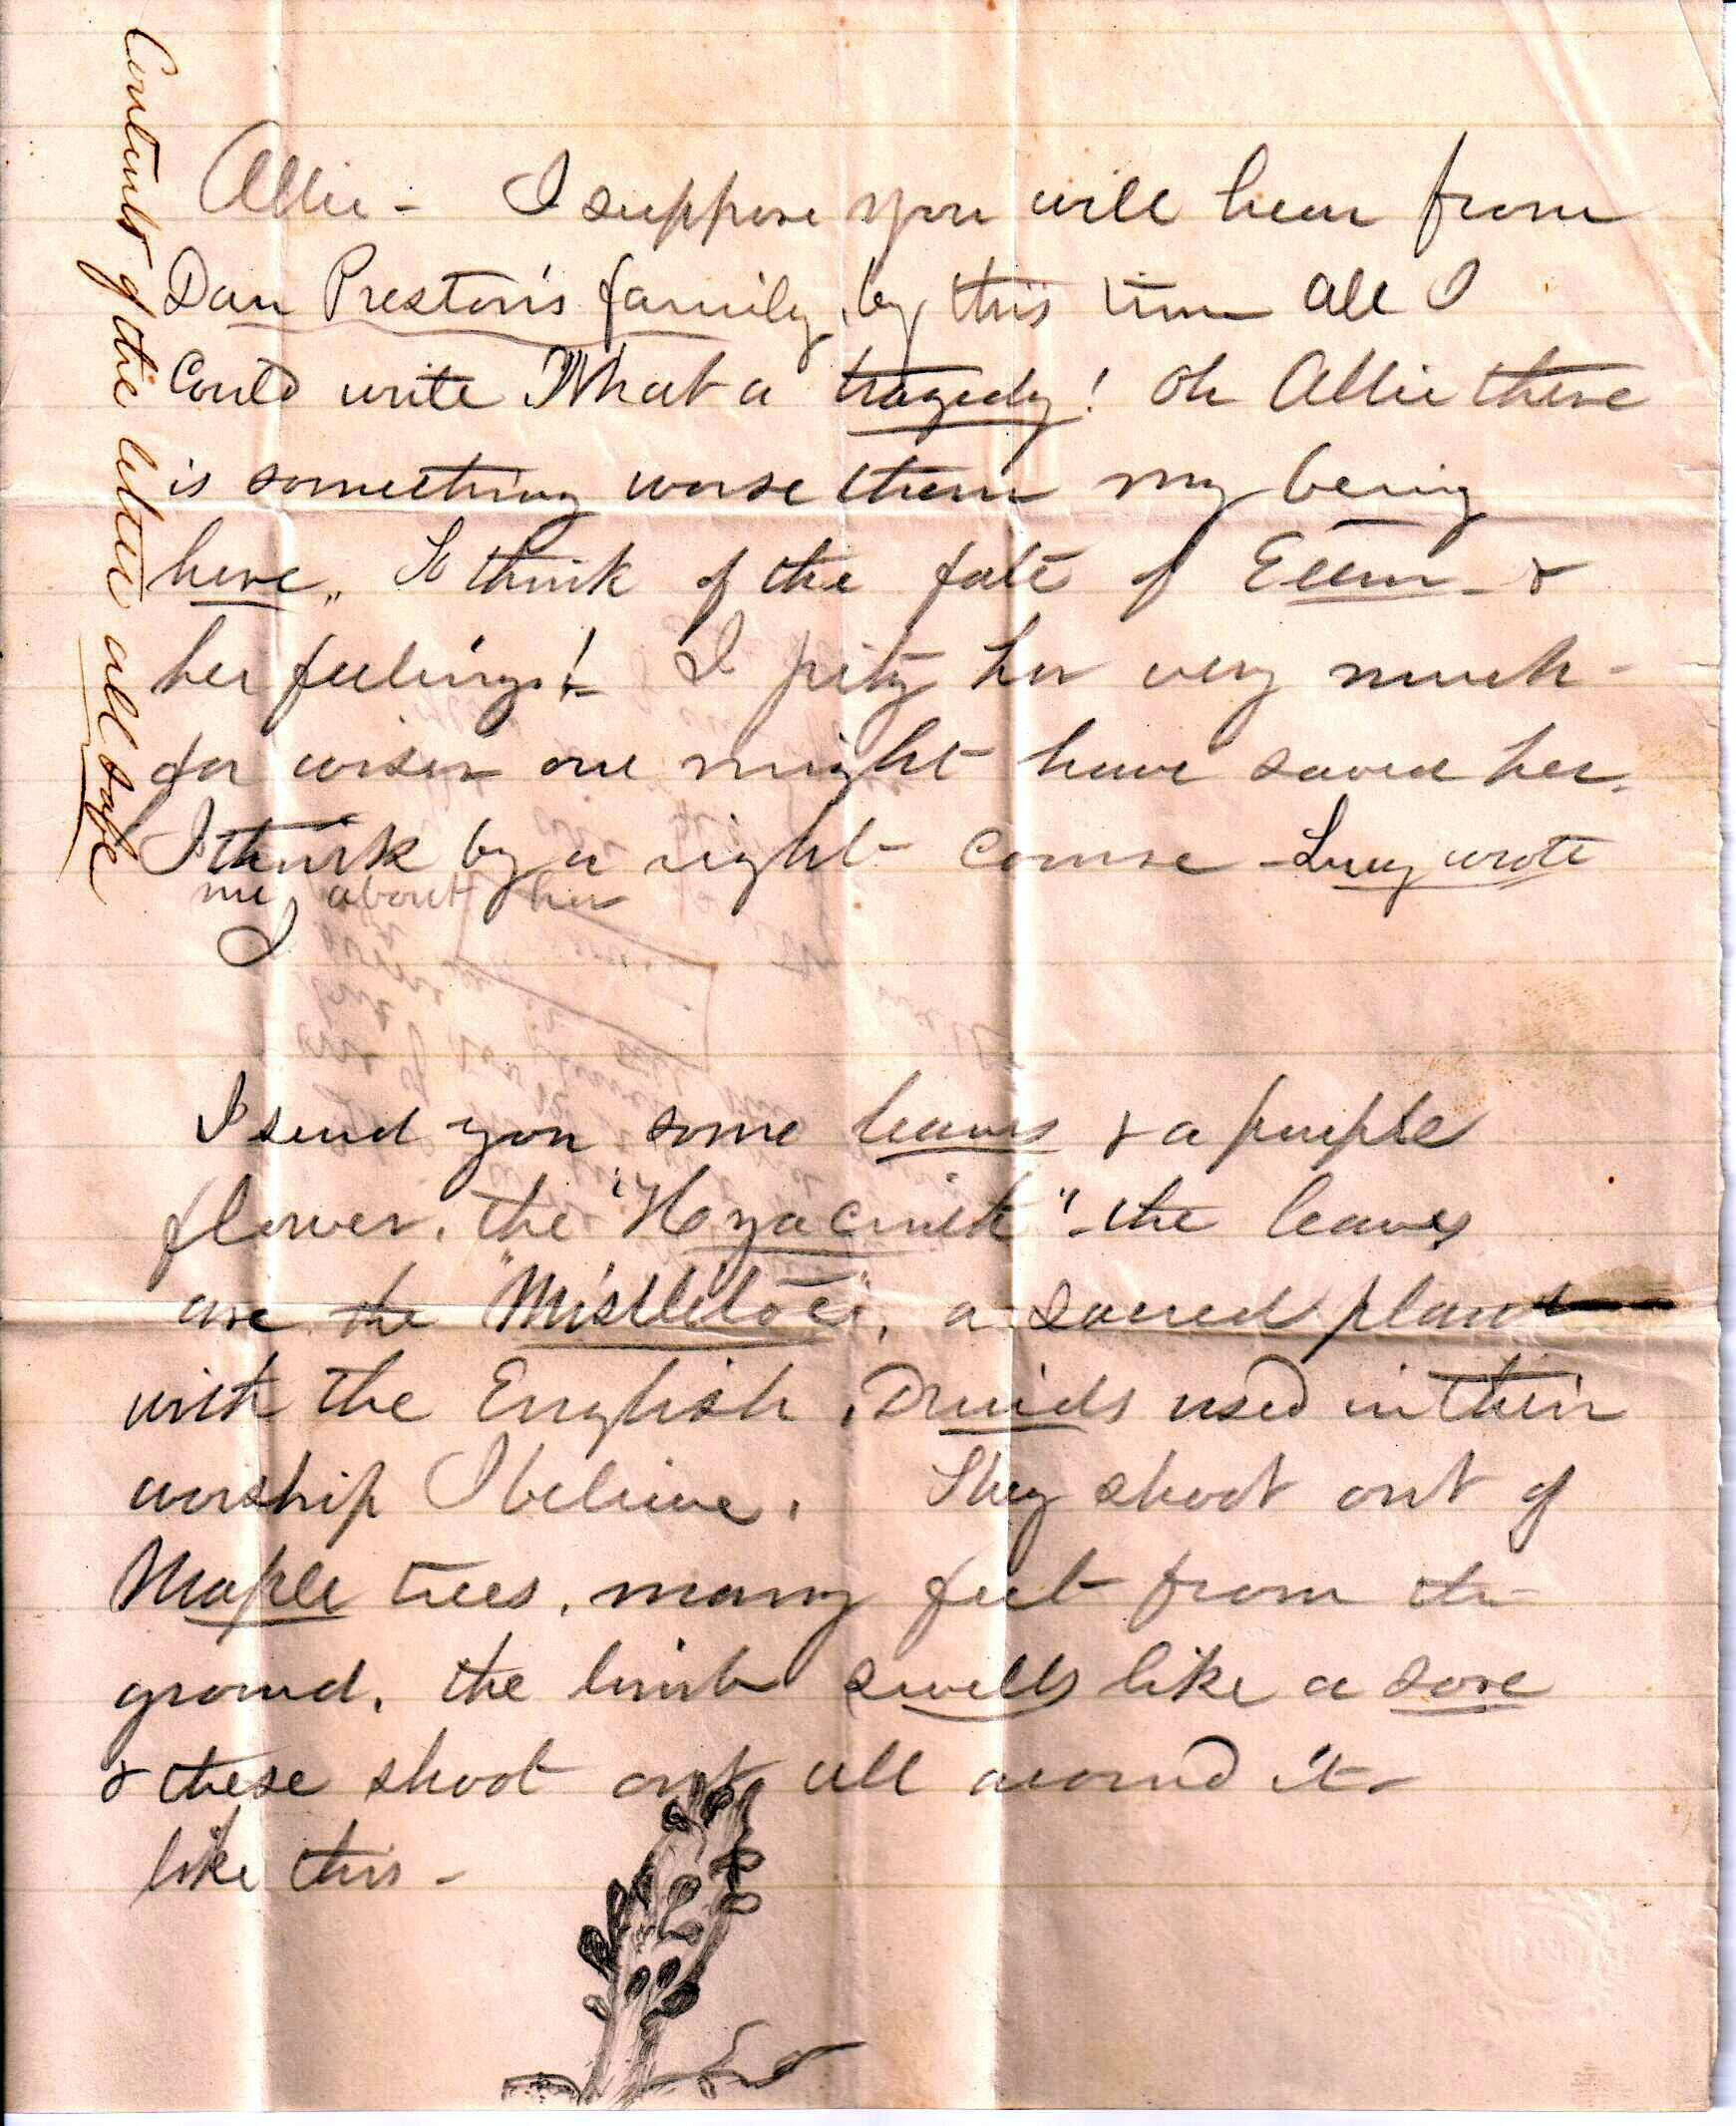 Contents of the letter all safe
Allie - I suppose you will hear from
Dan Preston's family, by this time all I
could write. What a tragedy! Oh Allie there
is something worse than my being
here„ To think of the fate of &
her feelings! - I pity her very much -
for wiser one might have saved her.
I think by a right course - Lucy wrote
me about her
I
I send you some leaves & a purple
flower, the "Hyacinth" - the leaves
are the "Mistletoe", a sacred plant
with the English, Druids used in their
worship I believe. They shoot out of
Maple trees, many feet from the
ground, the limb swells like a sore
& these shoot out all around it -
like this -